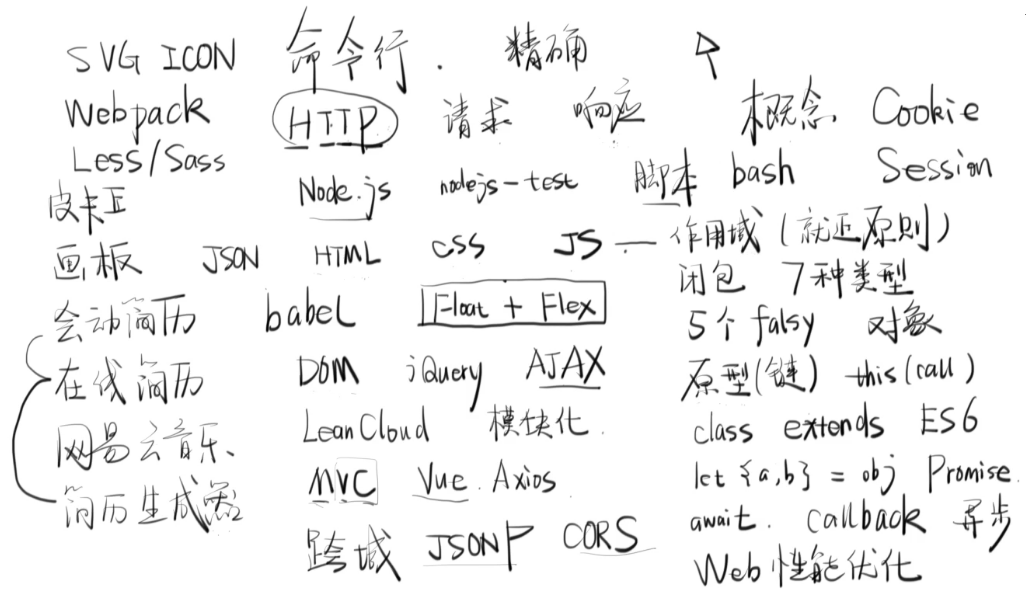 SVG ICON 命令行. 精确
Webpack HTTP 请求 响应 概念 Cookie
Less/Sass Node.js nodejs-test 脚本 bash Session
皮卡丘
画板 JSON HTML CSS JS — 作用域(就近原则)
闭包 7种类型
会动简历 babel Float + Flex 5个falsy 对象
在线简历 DOM jQuery AJAX 原型(链) this(call)
网易云音乐、 LeanCloud 模块化. class extends ES6
简历生成器 MVC Vue. Axios let {a,b} = obj Promise.
await. callback 异步
跨域 JSONP CORS Web 性能优化